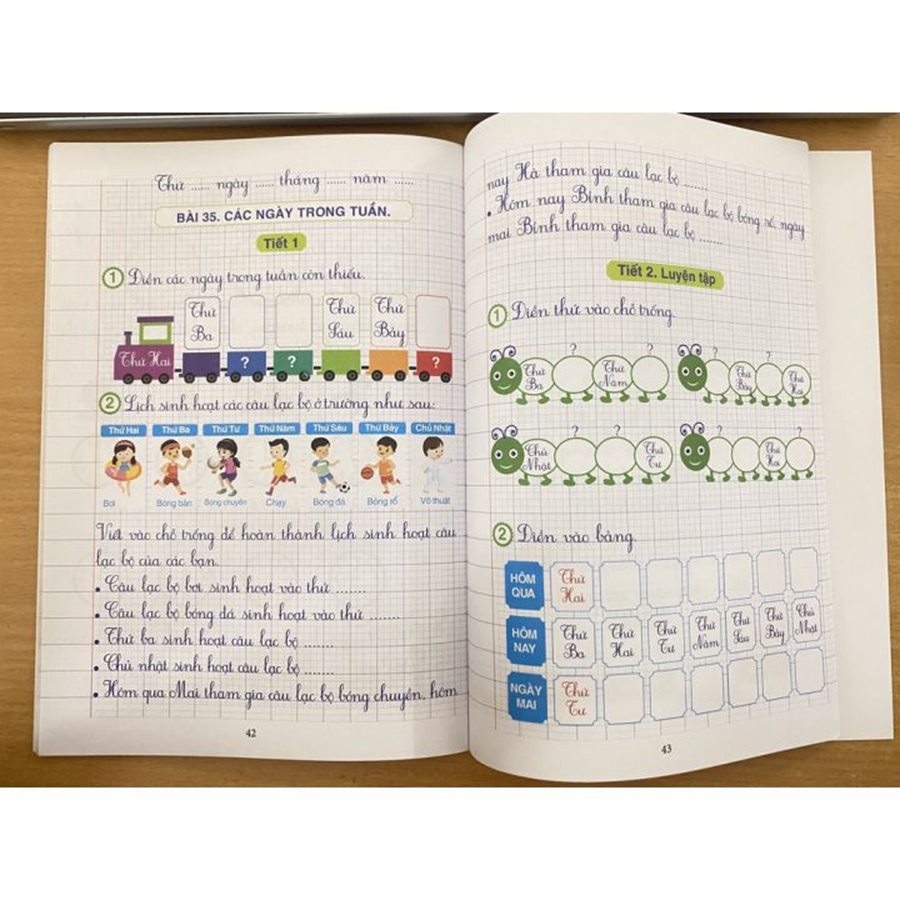 Thứ ...... ngày ...... tháng ...... năm ......
BÀI 35. CÁC NGÀY TRONG TUẦN.
Tiết 1
1 Điền các ngày trong tuần còn thiếu.
Thứ Hai
Thứ Ba
?
?
Thứ Sáu
Thứ Bảy
?
2 Lịch sinh hoạt các câu lạc bộ ở trường như sau:
Thứ Hai Thứ Ba Thứ Tư Thứ Năm Thứ Sáu Thứ Bảy Chủ Nhật
Bơi Bóng bàn Bóng chuyền Chạy Bóng đá Bóng rổ Võ thuật
Viết vào chỗ trống để hoàn thành lịch sinh hoạt câu
lạc bộ của các bạn.
• Câu lạc bộ bơi sinh hoạt vào thứ .......
• Câu lạc bộ bóng đá sinh hoạt vào thứ .......
• Thứ ba sinh hoạt câu lạc bộ .......
• Chủ nhật sinh hoạt câu lạc bộ .......
• Hôm qua Mai tham gia câu lạc bộ bóng chuyền, hôm
42
nay Hà tham gia câu lạc bộ .......
• Hôm nay Bình tham gia câu lạc bộ bóng rổ, ngày
mai Bình tham gia câu lạc bộ .......
Tiết 2. Luyện tập
1 Điền thứ vào chỗ trống.
? ? ? ?
Thứ Ba Thứ Năm Thứ Bảy Thứ Hai
? ? ?
Chủ Nhật Thứ Tư Thứ Hai
2 Điền vào bảng.
HÔM QUA Thứ Hai
HÔM NAY Thứ Ba Thứ Hai Thứ Tư Thứ Năm Thứ Sáu Thứ Bảy Chủ Nhật
NGÀY MAI Thứ Tư
43